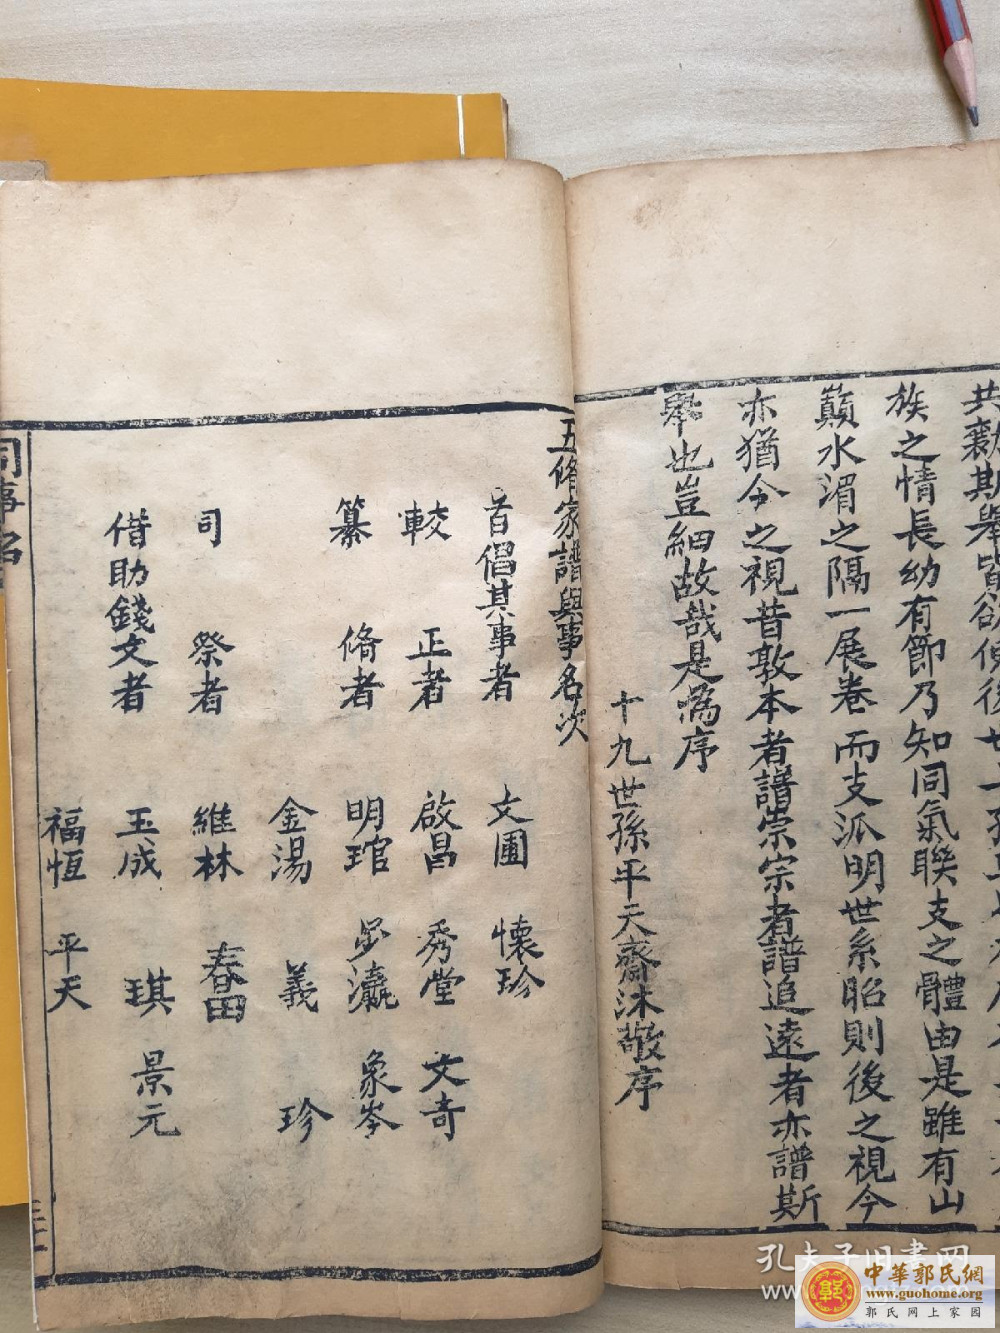 共襄斯舉皆欲使後世
族之情長幼有節乃知同氣聯支之體由是雖有山
巔水湄之隔一展卷而支派明世系昭則後之視今
亦猶今之視昔敦本者譜崇宗者譜追遠者亦譜斯
舉也豈細故哉是為序
十九世孫平天齋沐敬序
五脩家譜與事名次
首倡其事者 文圃 懷珍
較正者 啟昌 秀堂 文奇
纂脩者 明琯 瀛 象岑
金湯 義 珍
司祭者 維林 春田
借助錢文者 玉成 琪 景元
福恆 平天
同事名
孔夫子旧書网
中華郭氏網
www.guohome.org
郭氏网上家园
郭